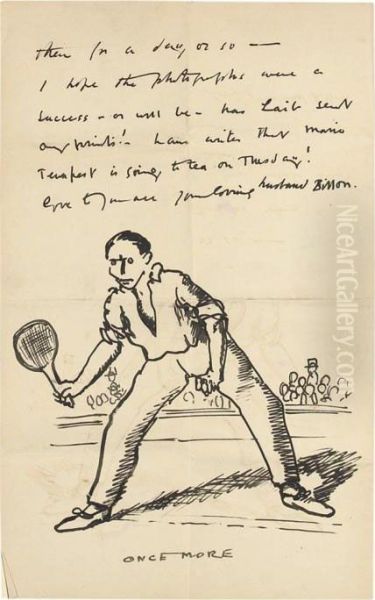 then for a day or so —
I hope the photographs were a
success - or will be - has Laib sent
any prints! - writes that Marie
Tempest is going to tea on Tuesday!
Love to you all your loving husband
ONCE MORE
NiceArtGallery.com